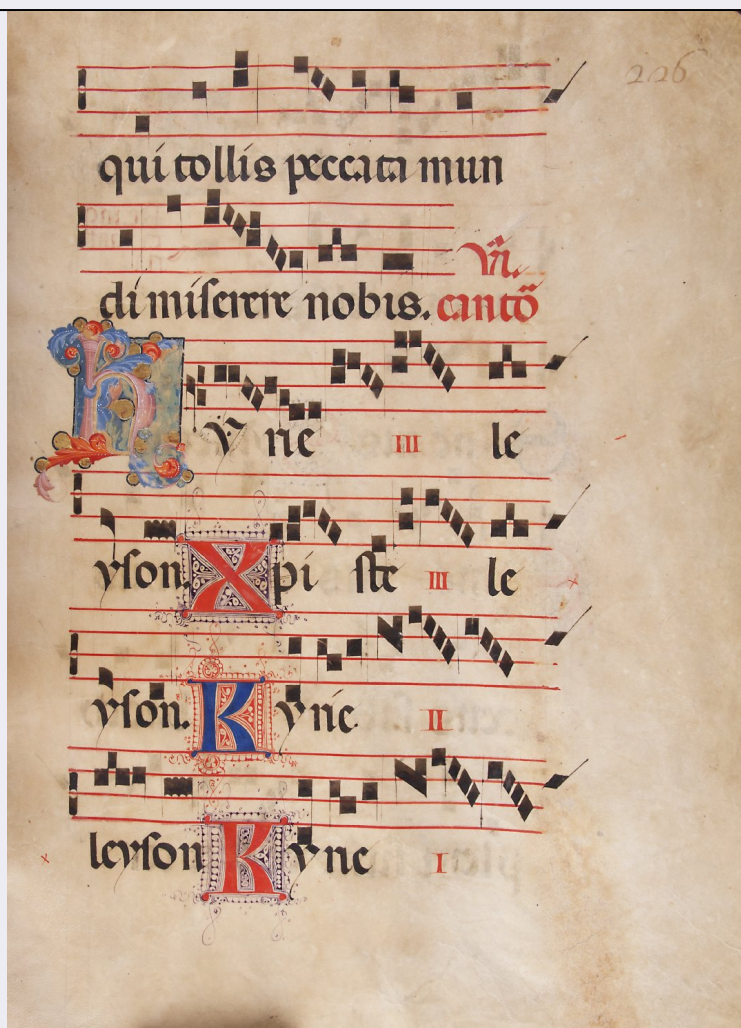 226
qui tollis peccata mun
di miserere nobis. canto
Kyrie III le
yson. Xpi ste III le
yson. Kyrie II
leyson Kyrie I